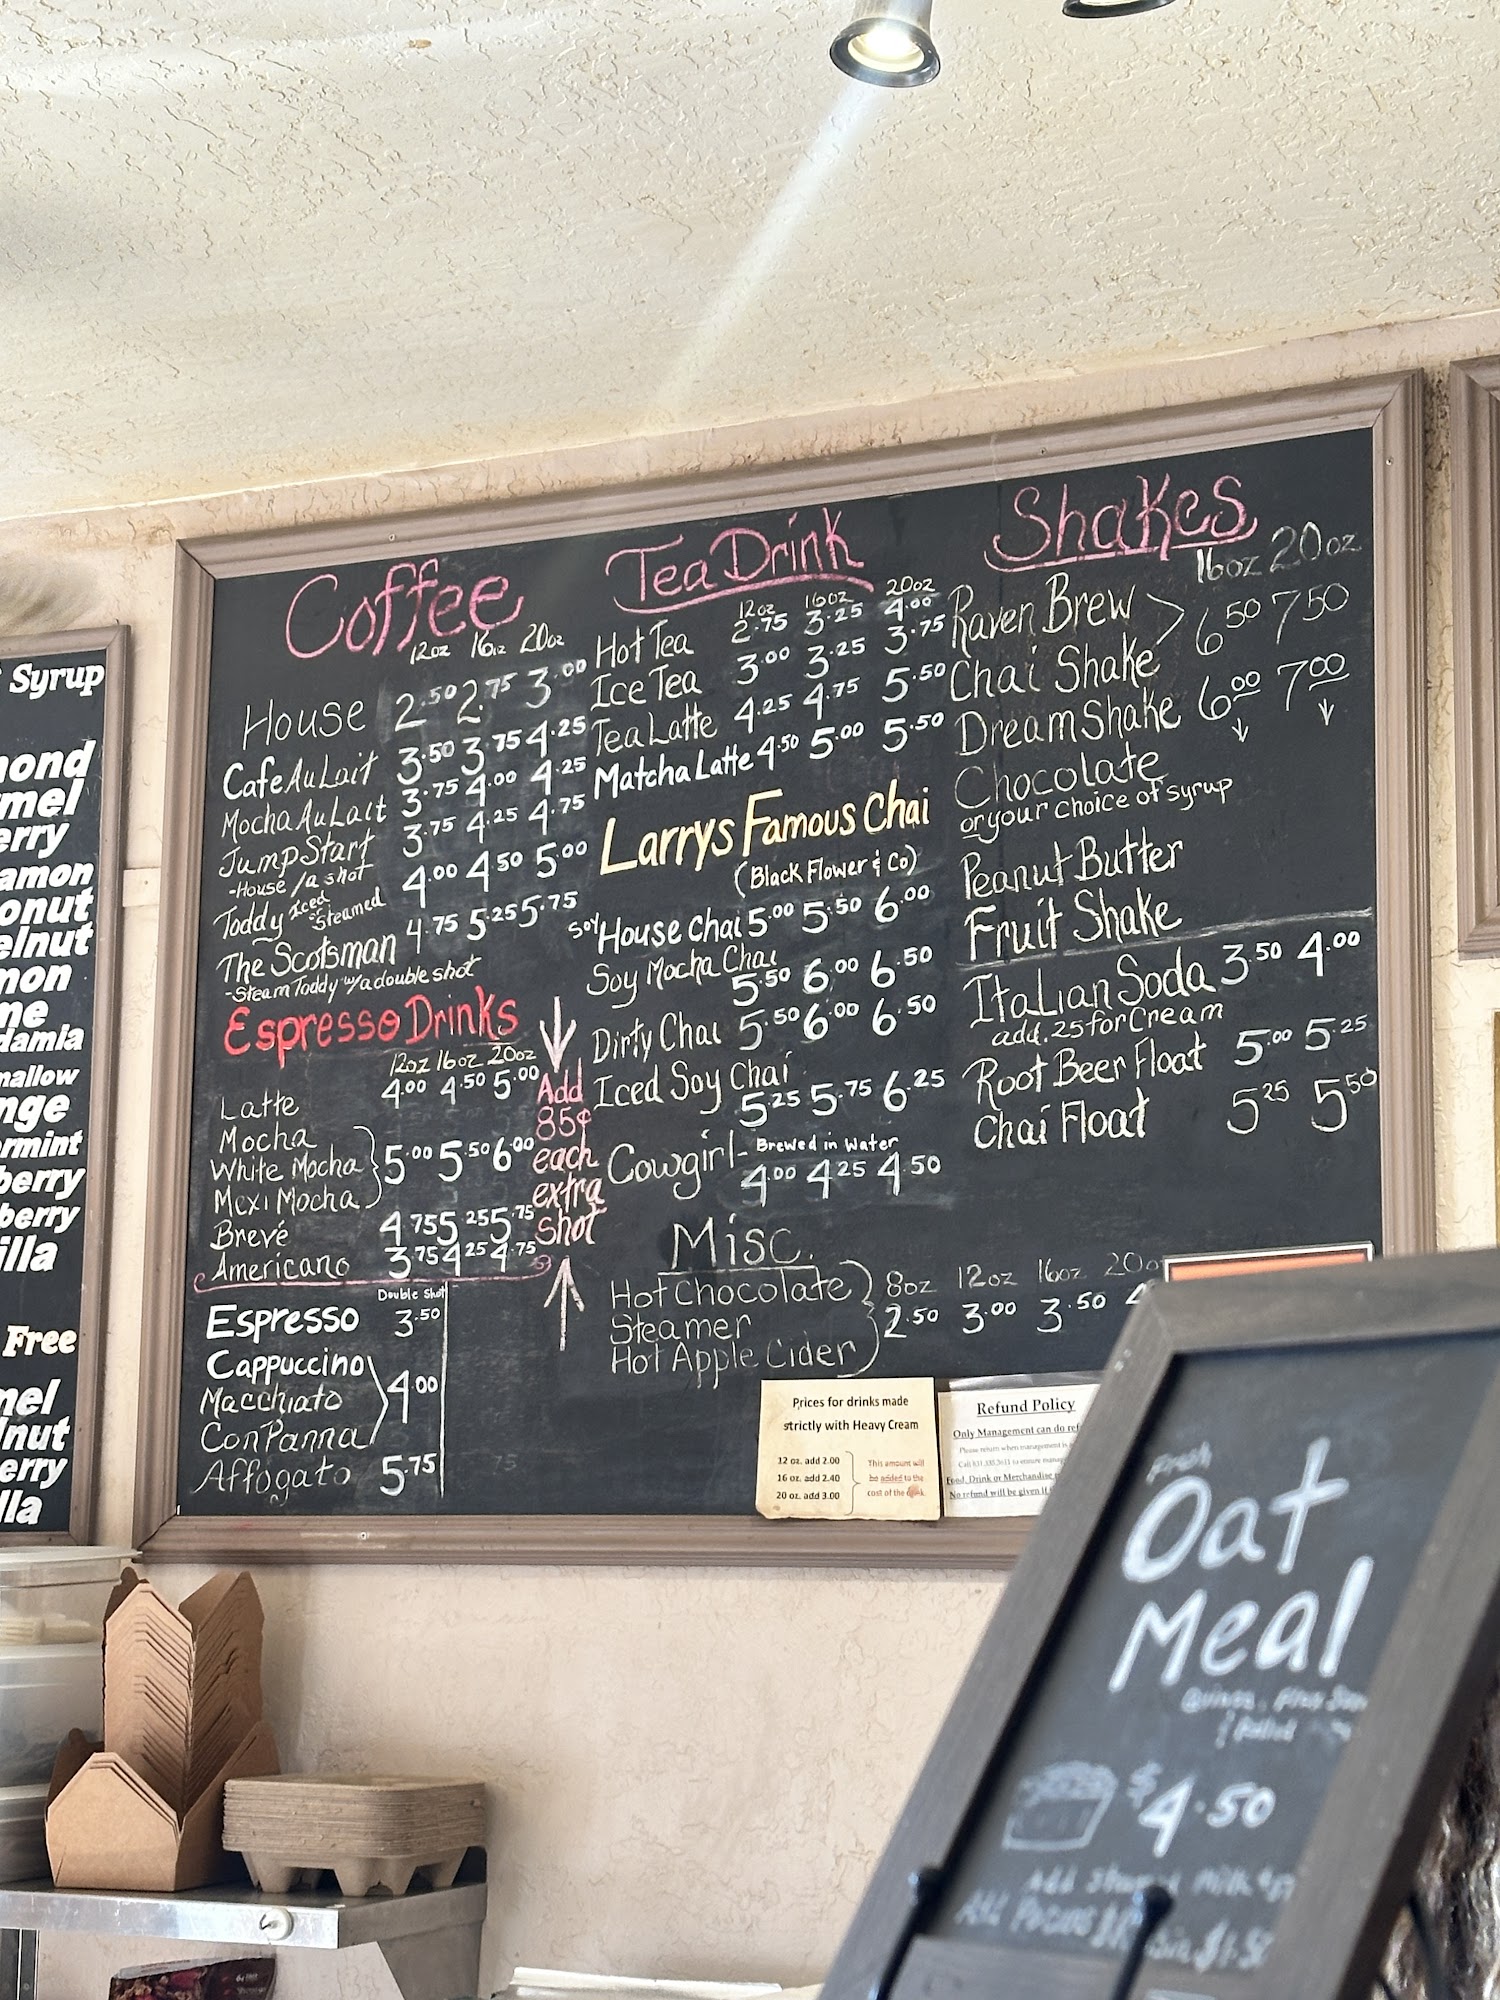 Syrup
Free
Coffee
12oz 16oz 20oz
House 2.50 2.75 3.00
Cafe Au Lait 3.50 3.75 4.25
Mocha Au Lait 3.75 4.00 4.25
Jump Start 3.75 4.25 4.75
-House /a shot
Toddy Iced or Steamed 4.00 4.50 5.00
The Scotsman 4.75 5.25 5.75
-Steam Toddy w/a double shot
Espresso Drinks
12oz 16oz 20oz
Latte 4.00 4.50 5.00
Mocha
White Mocha 5.00 5.50 6.00
Mexi Mocha
Brevé 4.75 5.25 5.75
Americano 3.75 4.25 4.75
Add
85¢
each
extra
shot
Double Shot
Espresso 3.50
Cappuccino
Macchiato 4.00
Con Panna
Affogato 5.75
Tea Drink
12oz 16oz 20oz
Hot Tea 2.75 3.25 4.00
Ice Tea 3.00 3.25 3.75
Tea Latte 4.25 4.75 5.50
Matcha Latte 4.50 5.00 5.50
Larrys Famous Chai
(Black Flower & Co)
Soy House Chai 5.00 5.50 6.00
Soy Mocha Chai
5.50 6.00 6.50
Dirty Chai 5.50 6.00 6.50
Iced Soy Chai
5.25 5.75 6.25
Cowgirl - Brewed in Water
4.00 4.25 4.50
Misc.
8oz 12oz 16oz 20oz
Hot Chocolate
Steamer 2.50 3.00 3.50 4
Hot Apple Cider
Shakes
16oz 20oz
Raven Brew 6.50 7.50
Chai Shake
Dream Shake 6.00 7.00
Chocolate
or your choice of syrup
Peanut Butter
Fruit Shake
Italian Soda 3.50 4.00
add .25 for Cream
Root Beer Float 5.00 5.25
Chai Float 5.25 5.50
Prices for drinks made
strictly with Heavy Cream
12 oz. add 2.00
16 oz. add 2.40
20 oz. add 3.00
This amount will
be added to the
cost of the drink.
Refund Policy
Only Management can do
Food, Drink or Merchandise
No refund will be given
Fresh
Oat
Meal
$4.50